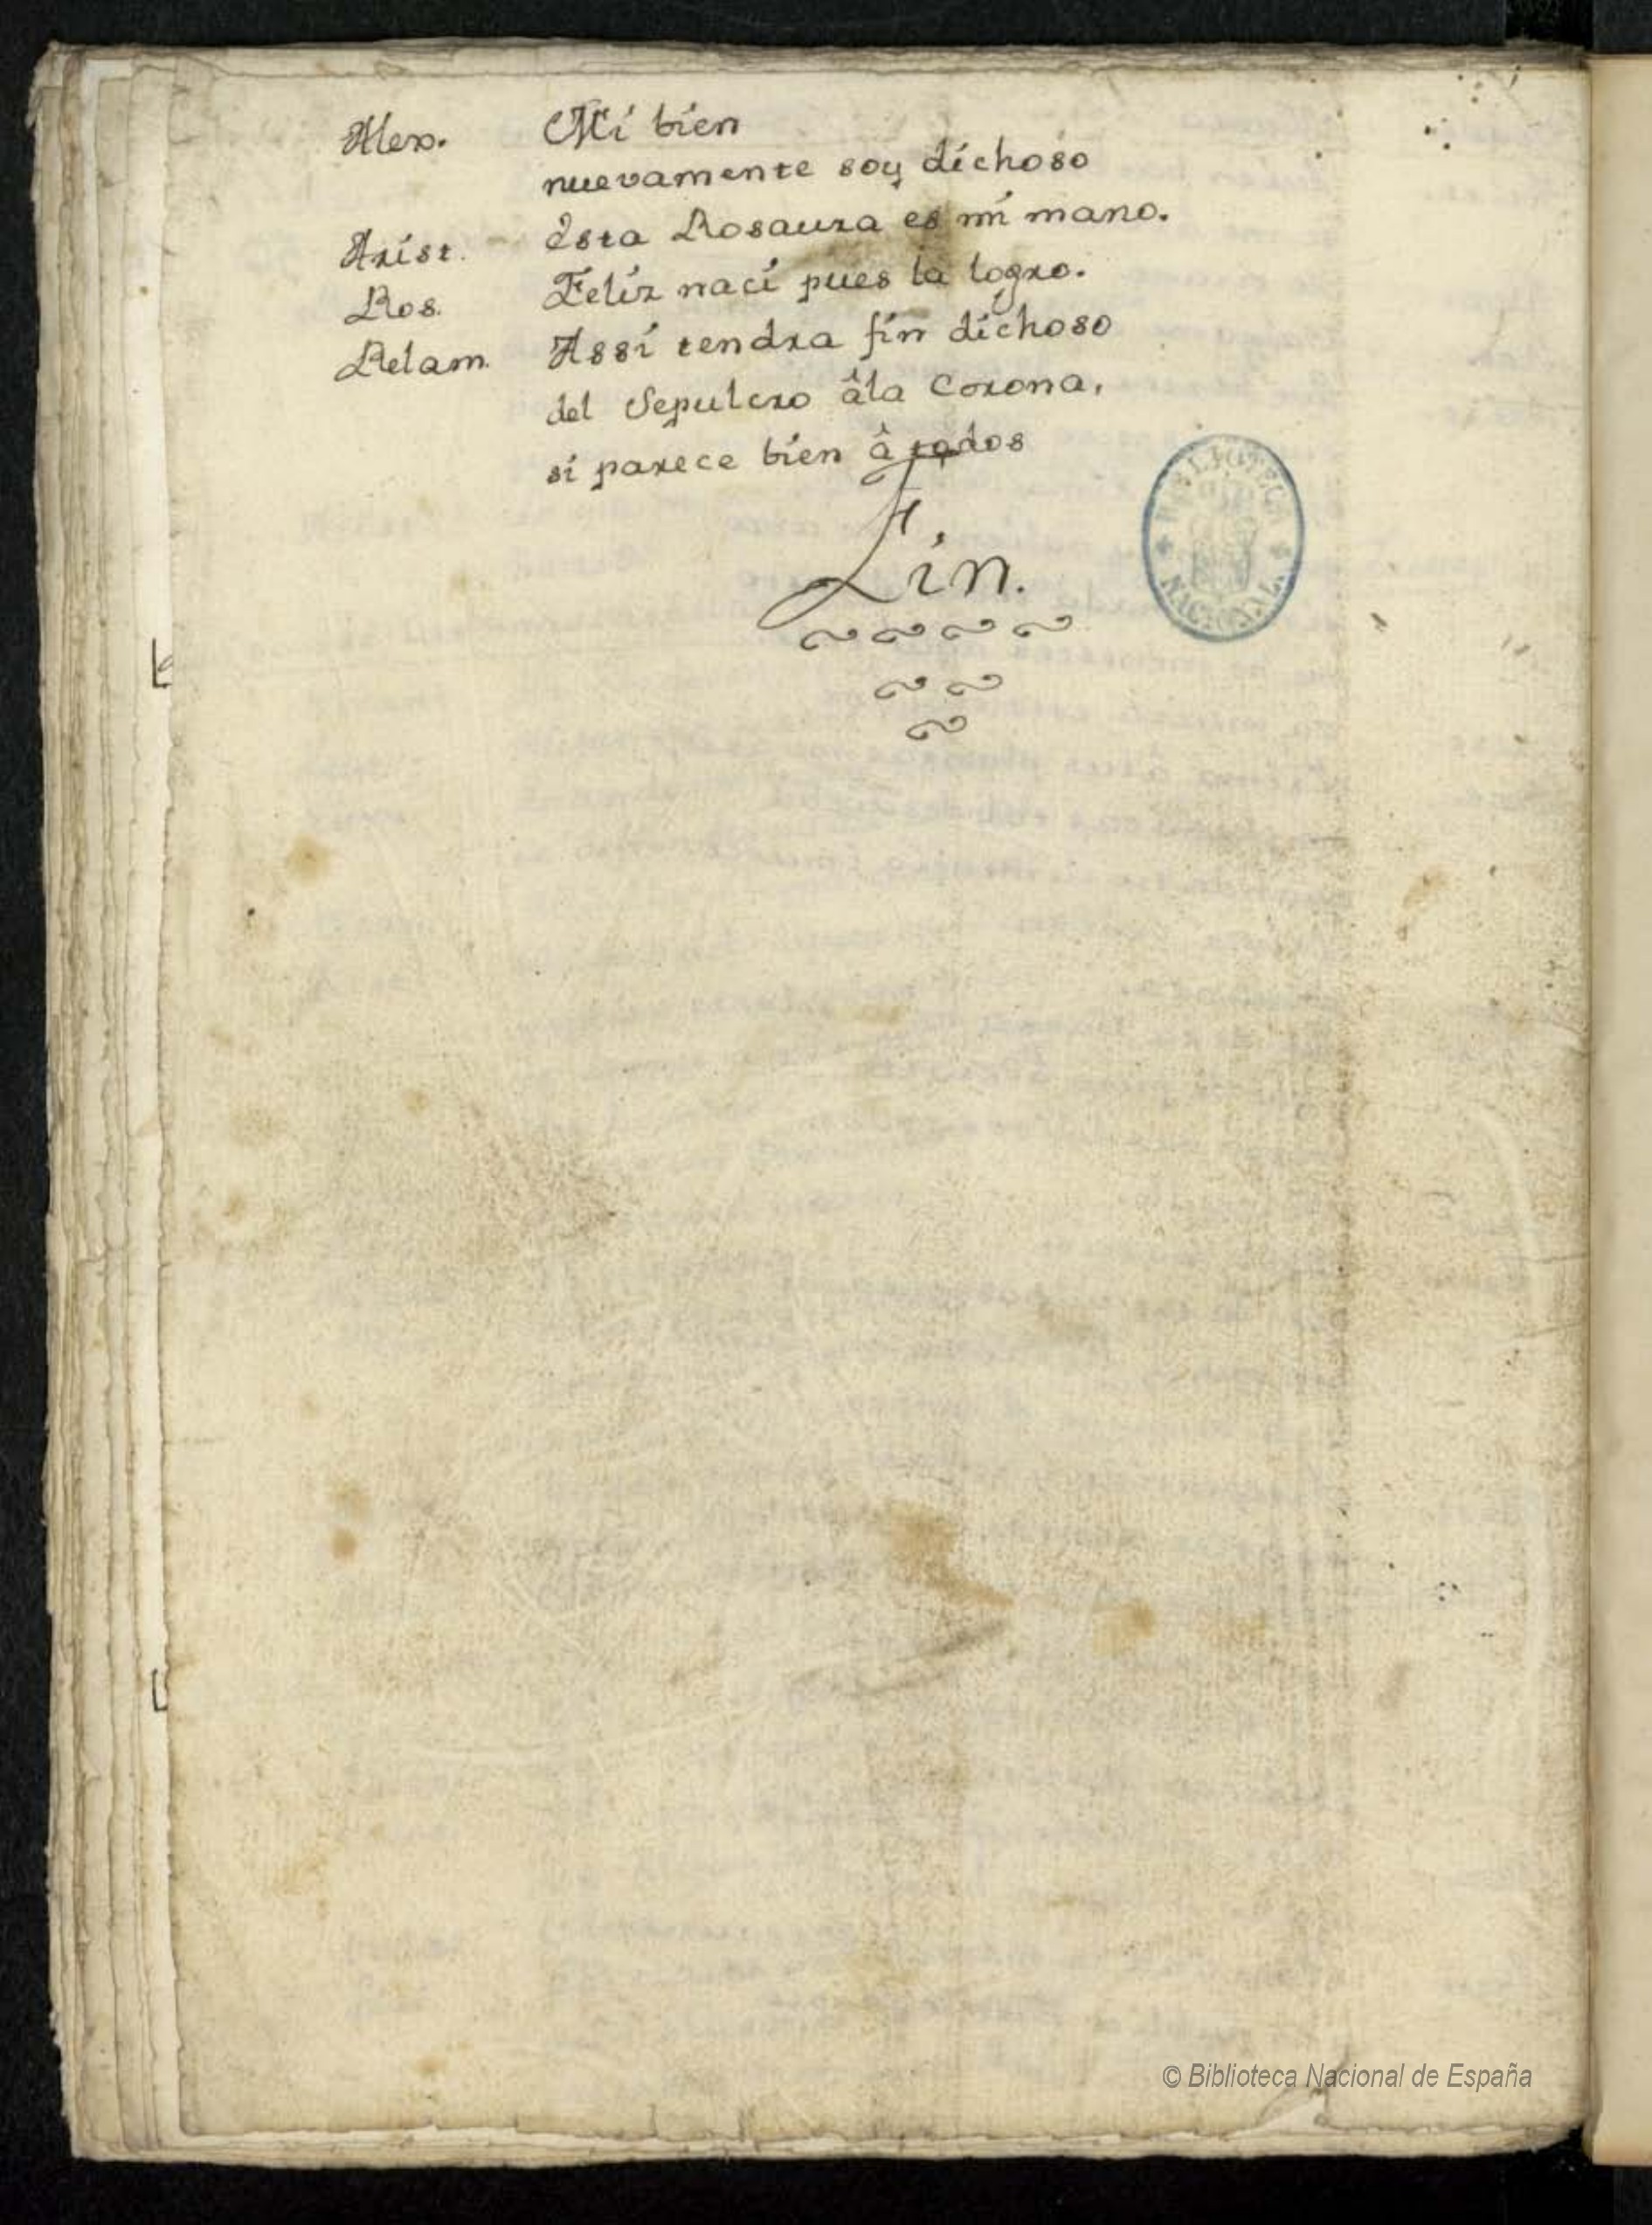 Alex. Mi bien
nuevamente soy dichoso
Arist. Esta Rosaura es mi mano.
Ros. Feliz naci pues la logro.
Relam. Assi tendra fin dichoso
del Sepulcro âla Corona,
si parece bien â todos
Fin.
BIBLIOTECA NACIONAL
© Biblioteca Nacional de España